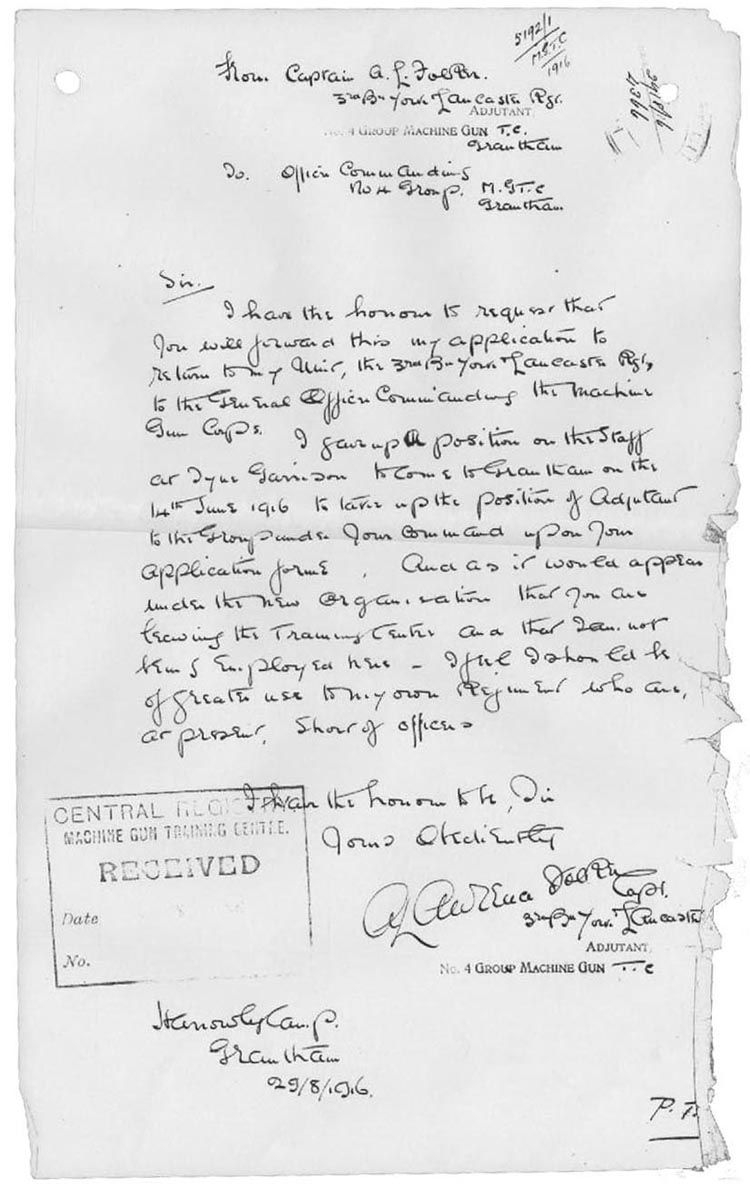 5192/1
M.G.T.C
1916
From Captain A. L.
3rd Bn York & Lancaster Rgt.
ADJUTANT,
No. 4 GROUP MACHINE GUN T.C.
Grantham
29/8/16
To. Officer Commanding
No 4 Group. M.G.T.C
Grantham.
Sir.
I have the honour to request that
you will forward this my application to
return to my Unit, the 3rd Bn York & Lancaster Rgt,
to the General Officer Commanding the Machine
Gun Corps. I gave up a position on the Staff
at Tyne Garrison to come to Grantham on the
14th June 1916 to take up the position of Adjutant
to the Group under your command upon your
application for me. And as it would appear
under the new organisation that you are
leaving the Training Center and that I am not
being employed here – I feel I should be
of greater use to my own Regiment who are,
at present, short of officers
I have the honour to be, Sir
Yours Obediently
A Lawrence
Capt.
3rd Bn York & Lancaster
ADJUTANT,
No. 4 GROUP MACHINE GUN T.C
CENTRAL REGISTRY
MACHINE GUN TRAINING CENTRE.
RECEIVED
Date
No.
Camp.
Grantham
29/8/1916.
P.T.